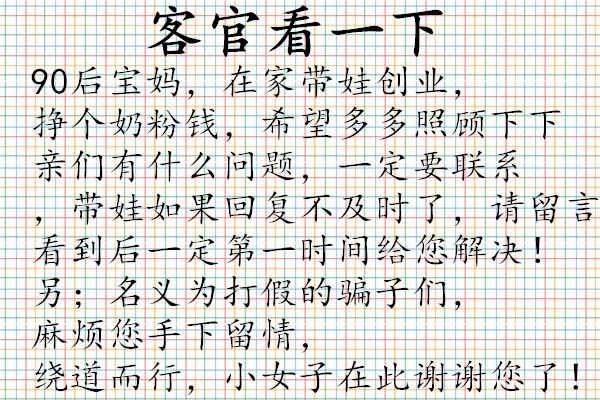 客官看一下
90后宝妈，在家带娃创业，
挣个奶粉钱，希望多多照顾下下
亲们有什么问题，一定要联系
，带娃如果回复不及时了，请留言
看到后一定第一时间给您解决！
另；名义为打假的骗子们，
麻烦您手下留情，
绕道而行，小女子在此谢谢您了！